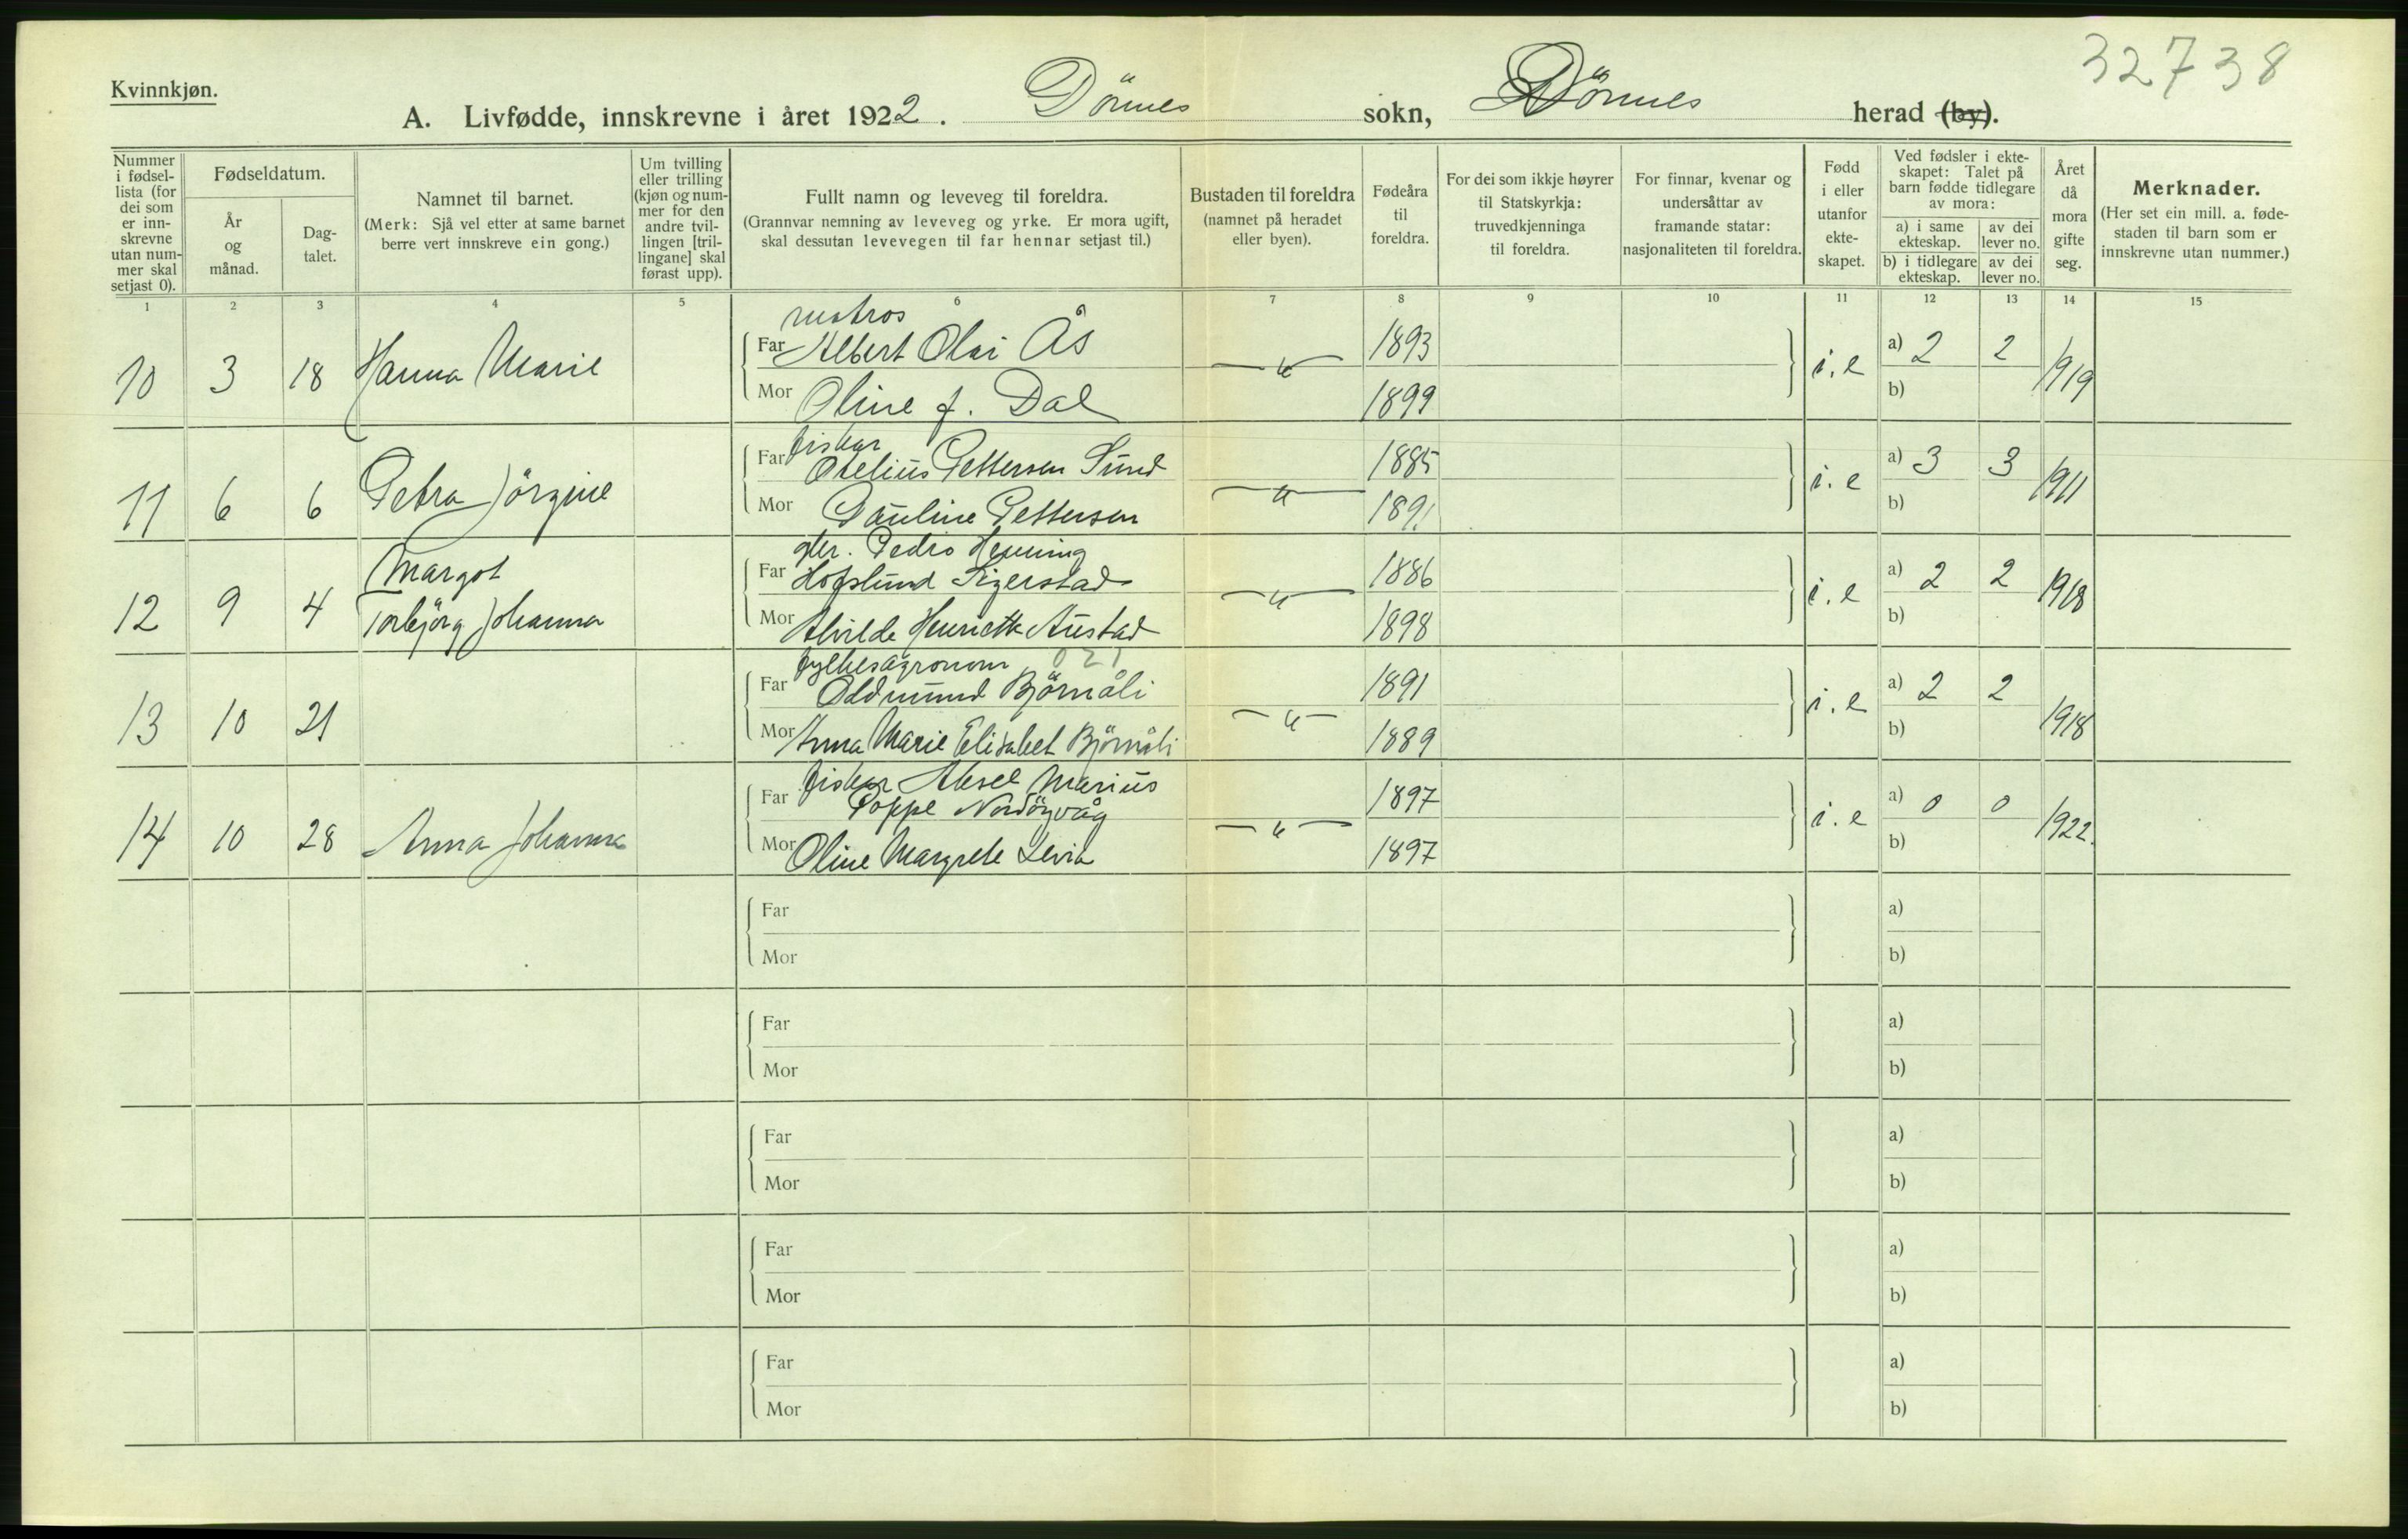 32738
Kvinnkjøn.
A. Livfødde, innskrevne i året 1922. Dönnes sokn, Dönnes herad (by).
Nummer i fødsel-
lista (for
dei som
er inn-
skrevne
utan num-
mer skal
setjast 0).
Fødseldatum.
År
og
månad.
Dag-
talet.
Namnet til barnet.
(Merk: Sjå vel etter at same barnet
berre vert innskreve ein gong.)
Um tvilling
eller trilling
(kjøn og num-
mer for den
andre tvil-
lingen [tril-
lingane] skal
førast upp).
Fullt namn og leveveg til foreldra.
(Grannvar nemning av leveveg og yrke. Er mora ugift,
skal dessutan levevegen til far hennar setjast til.)
Bustaden til foreldra
(namnet på heradet
eller byen).
Fødeåra
til
foreldra.
For dei som ikkje høyrer
til Statskyrkja:
truvedkjenninga
til foreldra.
For finnar, kvenar og
undersåttar av
framande statar:
nasjonaliteten til foreldra.
Fødd
i eller
utanfor
ekte-
skapet.
Ved fødsler i ekte-
skapet: Talet på
barn fødde tidlegare
av mora:
a) i same
ekteskap.
av dei
lever no.
b) i tidlegare
ekteskap.
av dei
lever no.
Året
då
mora
gifte
seg.
Merknader.
(Her set ein mill. a. føde-
staden til barn som er
innskrevne utan nummer.)
1 2 3 4 5 6 7 8 9 10 11 12 13 14 15
10 3 18 Hanna Marie
matros
Far Albert Olai Ås
Mor Oline f. Dal
—"— 1893
1899
i.e a) 2 2
b)
1919
11 6 6 Petra Jörgine
fiskar
Far Otelius Pettersen Sund
Mor Pauline Pettersen
—"— 1885
1891
i.e a) 3 3
b)
1911
12 9 4 Margot
Torbjörg Johanna
Pedro Henning
Far Hofslund Sigerstad
Mor Alvilde Henriette Austad
—"— 1886
1898
i.e a) 2 2
b)
1918
13 10 21
fylkesagronom 021
Far Oldmund Björnåli
Mor Anna Marie Elisabet Björnåli
—"— 1891
1889
i.e a) 2 2
b)
1918
14 10 28 Anna Johanna
fiskar Aksel Marius
Far Poppe Nordöyvåg
Mor Oline Margrete Levia
—"— 1897
1897
i.e a) 0 0
b)
1922.
Far a)
Mor b)
Far a)
Mor b)
Far a)
Mor b)
Far a)
Mor b)
Far a)
Mor b)